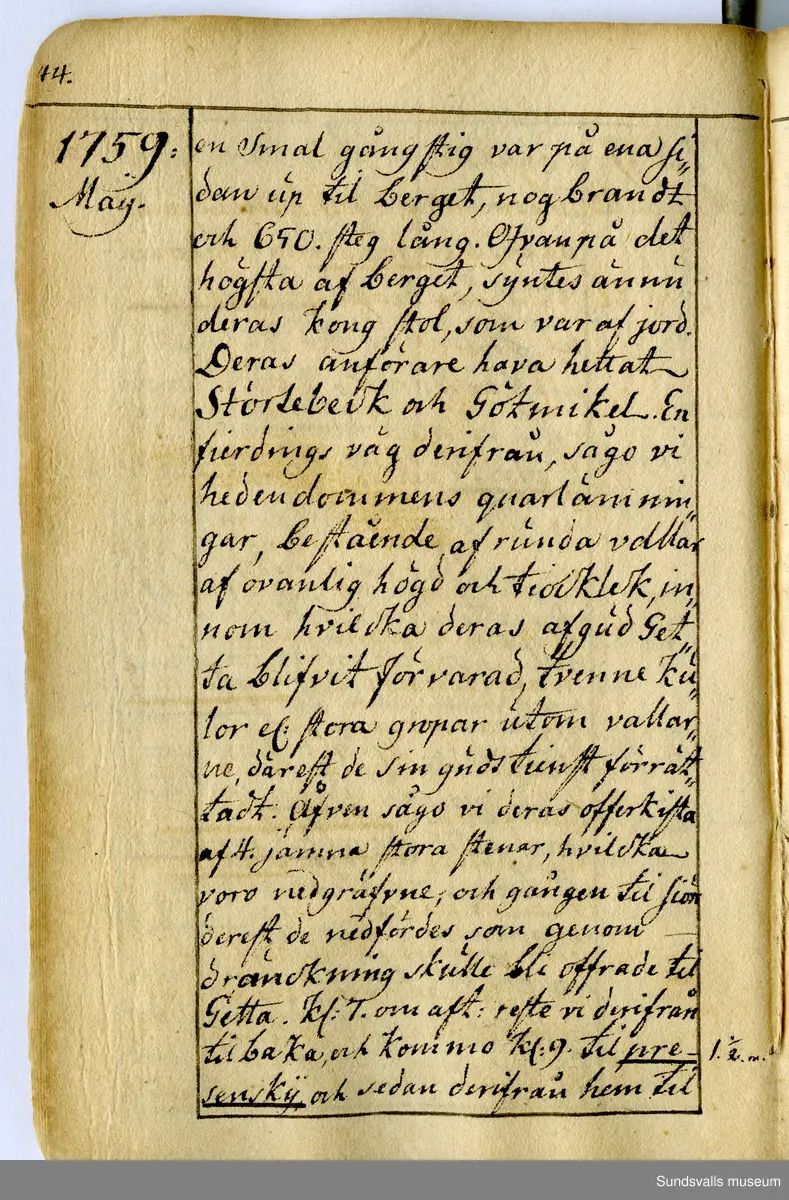 44.
1759:
Maÿ.
en smal gångstig var på ena si„
dan up til berget, nog brandt
och 650. steg lång. Ofvanpå det
högsta af berget, sÿntes ännu
deras kong stol, som var af jord.
Deras anförare hava hettat
Störtebeck och Götmikel. En
fierdings väg derifrån, sågo vi
hedendommens quarlämnin„
gar, bestående af runda vallar
af ovanlig högd och tiocklek, in„
nom hvilcka deras afgud Get„
ta blifvit förvarad, tvenne ku„
lor el: stora gropar utom vallar„
ne, därest de sin gudstienst förrät„
tadt. Äfven sågo vi deras offerkista
af 4. jämna stora stenar, hvilcka
voro nedgräfvne, och gången til siön
derest de nedfördes som genom
dränckning skulle bli offrade til
Getta. kl: 7. om aft: reste vi derifrån
tilbaka, och kommo kl: 9. til pre-
senskÿ, och sedan derifrån hem til
1. ½. m.
Sundsvalls museum